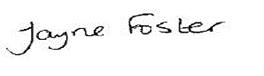 Jayne Foster